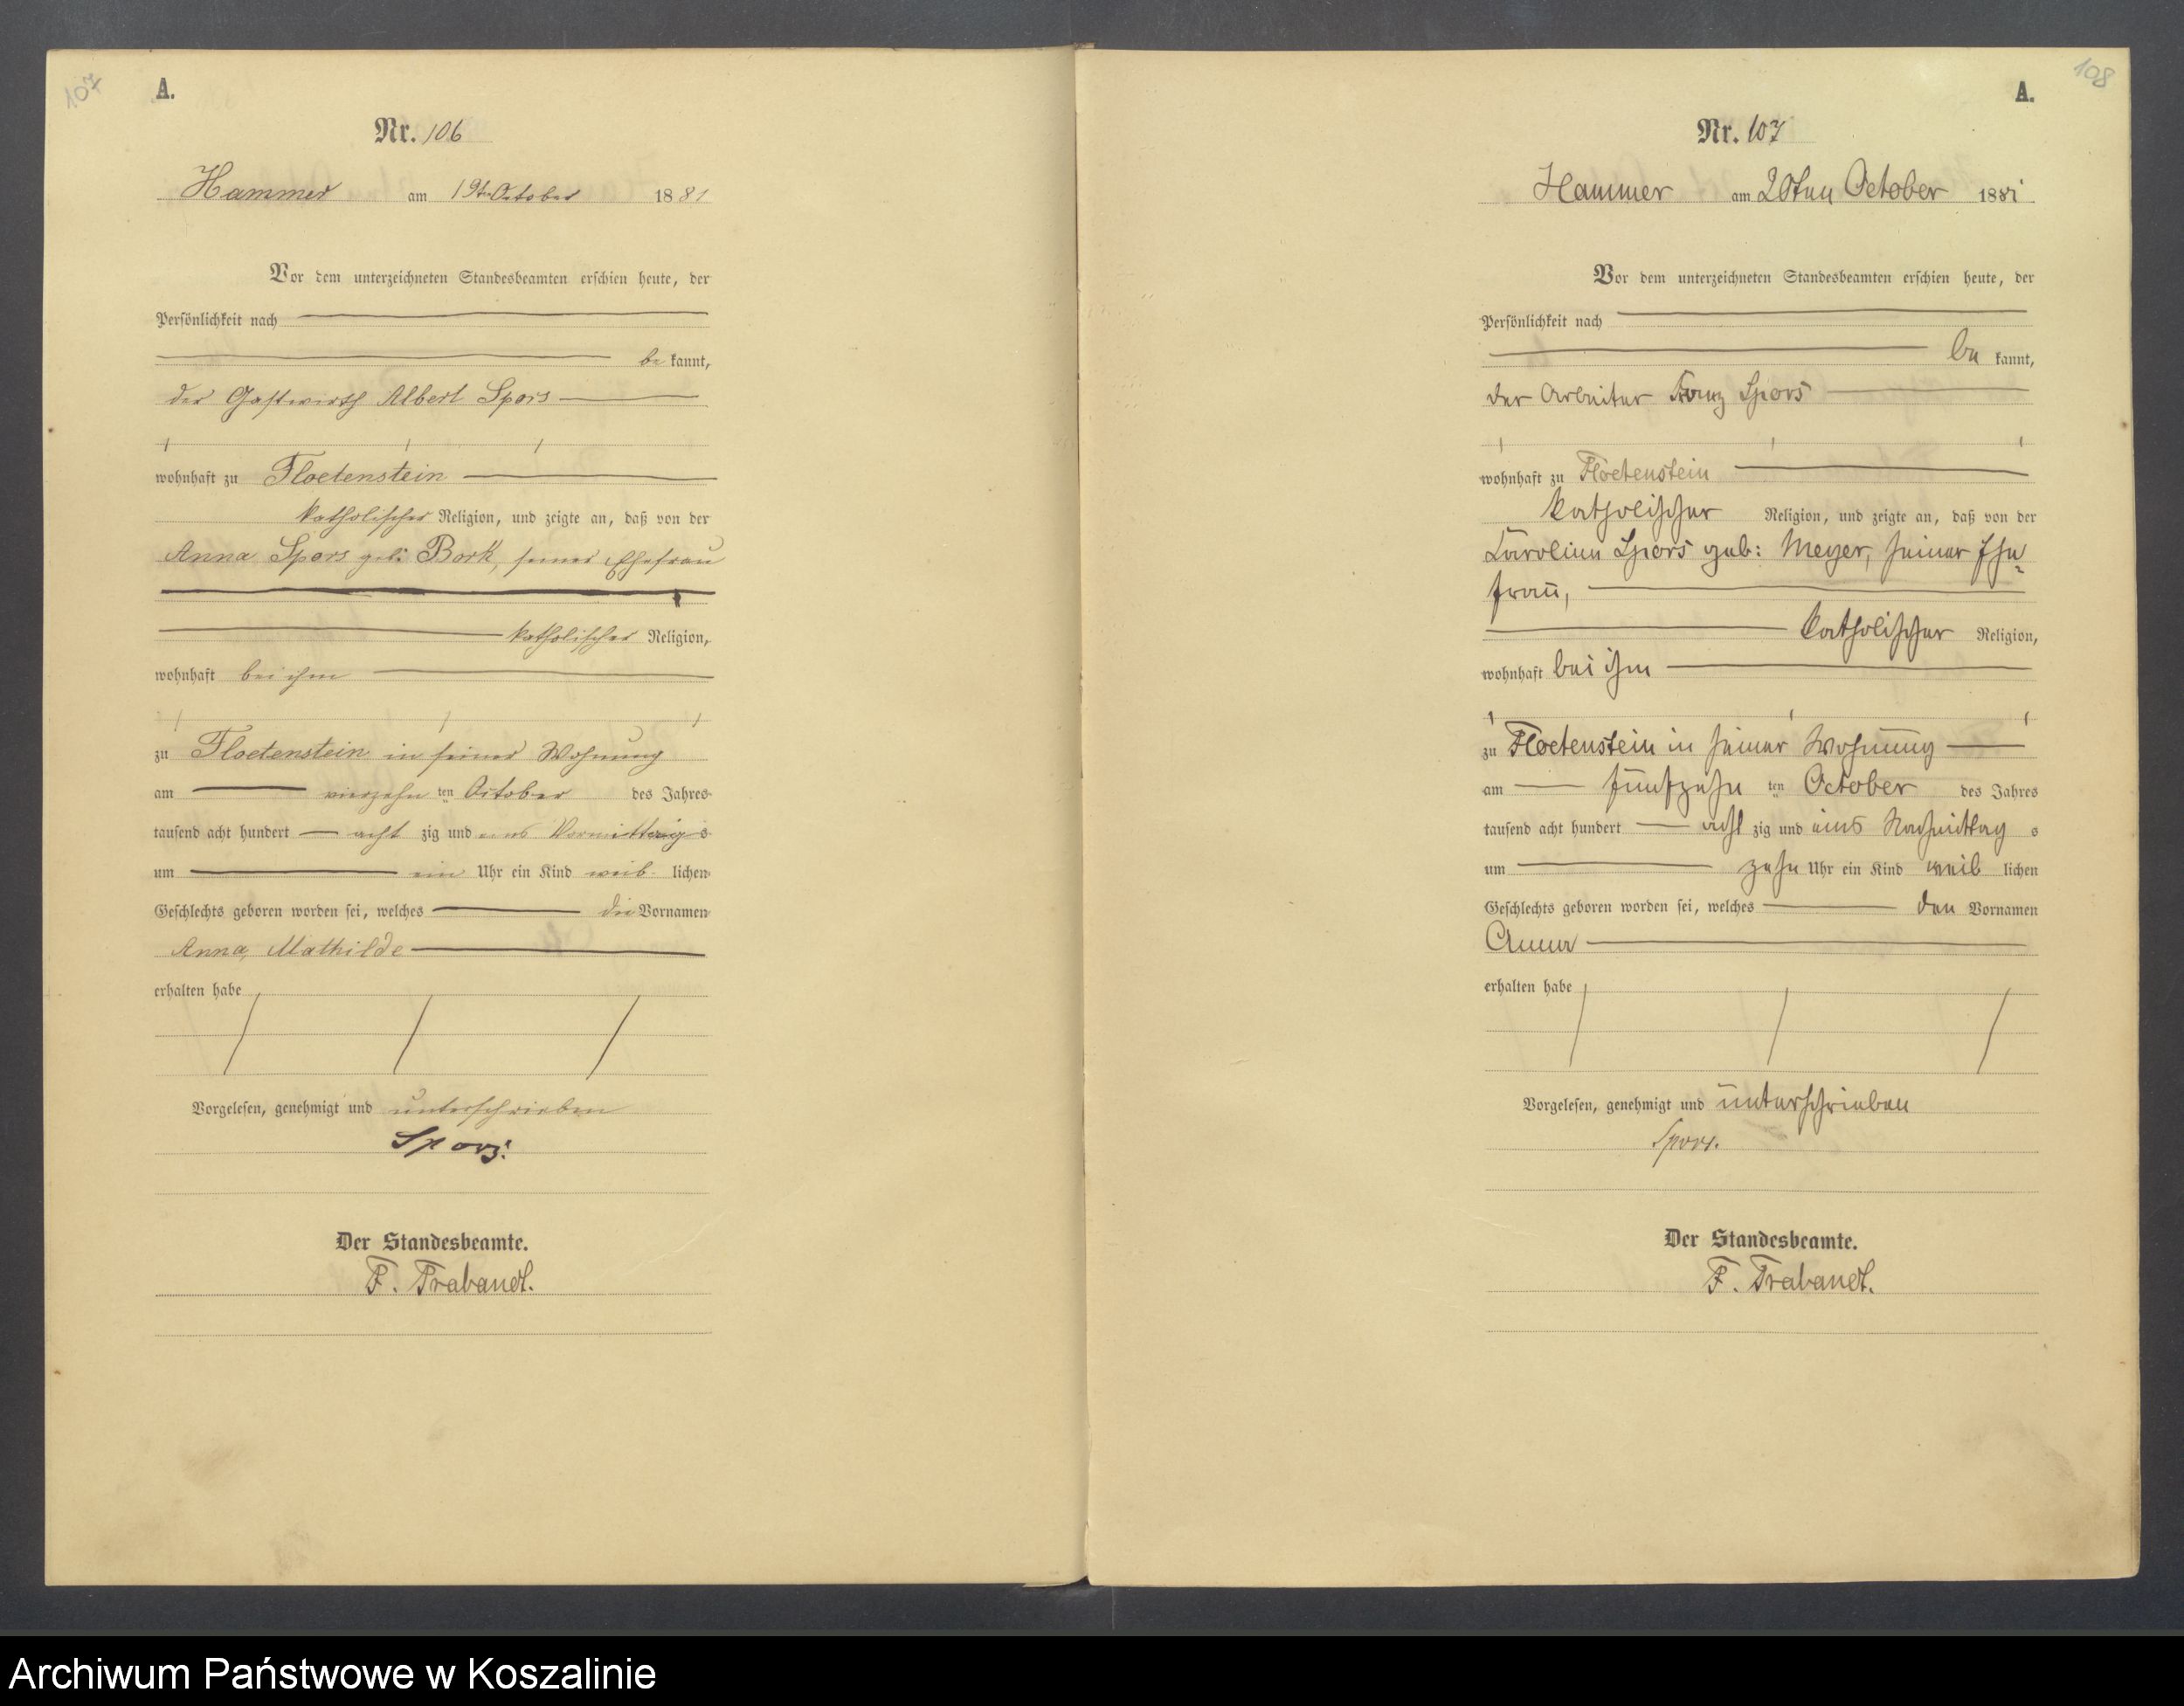 107
A.
Nr. 106
Hammer am 19ten October 1881
Vor dem unterzeichneten Standesbeamten erschien heute, der
Persönlichkeit nach
be kannt,
der Gastwirth Albert Spors
wohnhaft zu Floetenstein
katholischer Religion, und zeigte an, daß von der
Anna Spors geb: Bork, seiner Ehefrau
katholischer Religion,
wohnhaft bei ihm
zu Floetenstein in seiner Wohnung
am vierzehn ten October des Jahres
tausend acht hundert acht zig und eins Vormittag s
um ein Uhr ein Kind weib lichen
Geschlechts geboren worden sei, welches die Vornamen
Anna, Mathilde
erhalten habe
Vorgelesen, genehmigt und unterschrieben
Spors.
Der Standesbeamte.
F. Trabandt.
108
A.
Nr. 107
Hammer am 20ten October 1881
Vor dem unterzeichneten Standesbeamten erschien heute, der
Persönlichkeit nach
be kannt,
der Arbeiter Franz Spors
wohnhaft zu Floetenstein
katholischer Religion, und zeigte an, daß von der
Caroline Spors geb: Meyer, seiner Ehe-
frau,
katholischer Religion,
wohnhaft bei ihm
zu Floetenstein in seiner Wohnung
am fünfzehn ten October des Jahres
tausend acht hundert acht zig und eins Nachmittag s
um zehn Uhr ein Kind weib lichen
Geschlechts geboren worden sei, welches den Vornamen
Anna
erhalten habe
Vorgelesen, genehmigt und unterschrieben
Spors.
Der Standesbeamte.
F. Trabandt.
Archiwum Państwowe w Koszalinie